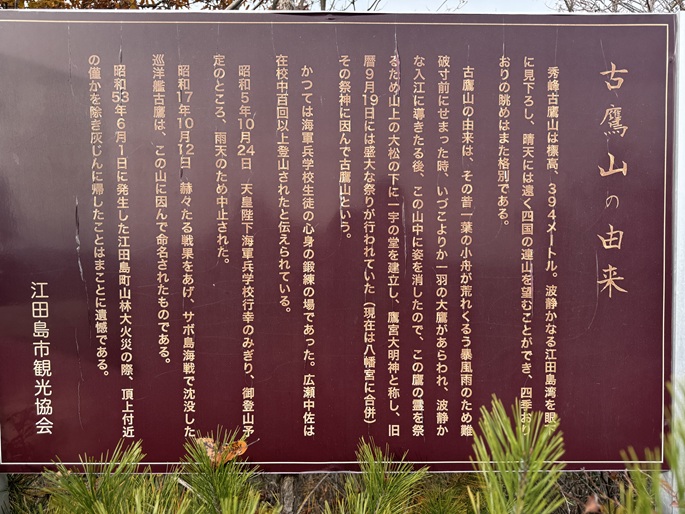 古鷹山の由来
秀峰古鷹山は標高、394メートル。波静かなる江田島湾を眼
に見下ろし、晴天には遠く四国の連山を望むことができ、四季お
おりの眺めはまた格別である。
古鷹山の由来は、その昔一葉の小舟が荒れくるう暴風雨のため難
破寸前にせまった時、いづこよりか一羽の大鷹があらわれ、波静か
な入江に導きたる後、この山中に姿を消したので、この鷹の霊を祭
るため山上の大松の下に一宇の堂を建立し、鷹宮大明神と称し、旧
暦9月19日には盛大な祭りが行われていた(現在は八幡宮に合併)
その祭神に因んで古鷹山という。
かつては海軍兵学校生徒の心身の鍛練の場であった。広瀬中佐は
在校中百回以上登山されたと伝えられている。
昭和5年10月24日 天皇陛下海軍兵学校行幸のみぎり、御登山予
定のところ、雨天のため中止された。
昭和17年10月12日 赫々たる戦果をあげ、サボ島海戦で沈没した
巡洋艦古鷹は、この山に因んで命名されたものである。
昭和53年6月1日に発生した江田島町山林大火災の際、頂上付近
の僅かを除き灰じんに帰したことはまことに遺憾である。
江田島市観光協会